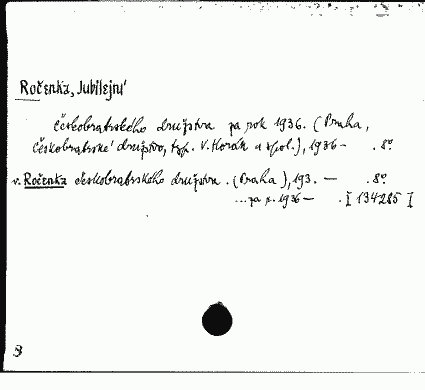 Ročenka, Jubilejní
českobratrského družstva za rok 1936. (Praha,
Českobratrské družstvo, typ. V. Horák a spol.), 1936 – . 8°
v. Ročenka českobratrského družstva. (Praha), 193. — . 8°
... za r. 1936 — . I 134285 I
8